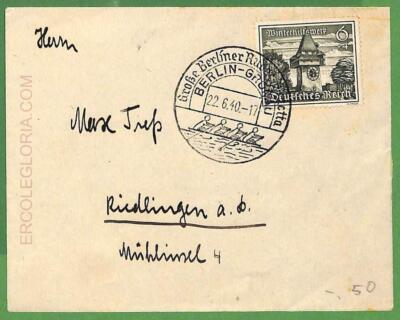 Herrn
Max Treß
Riedlingen a. D.
Mühlinsel 4
Große Berliner
BERLIN-GRÜNAU
22.6.40.-17
Winterhilfswerk
6
Deutsches Reich
-.50
ERCOLEGLORIA.COM